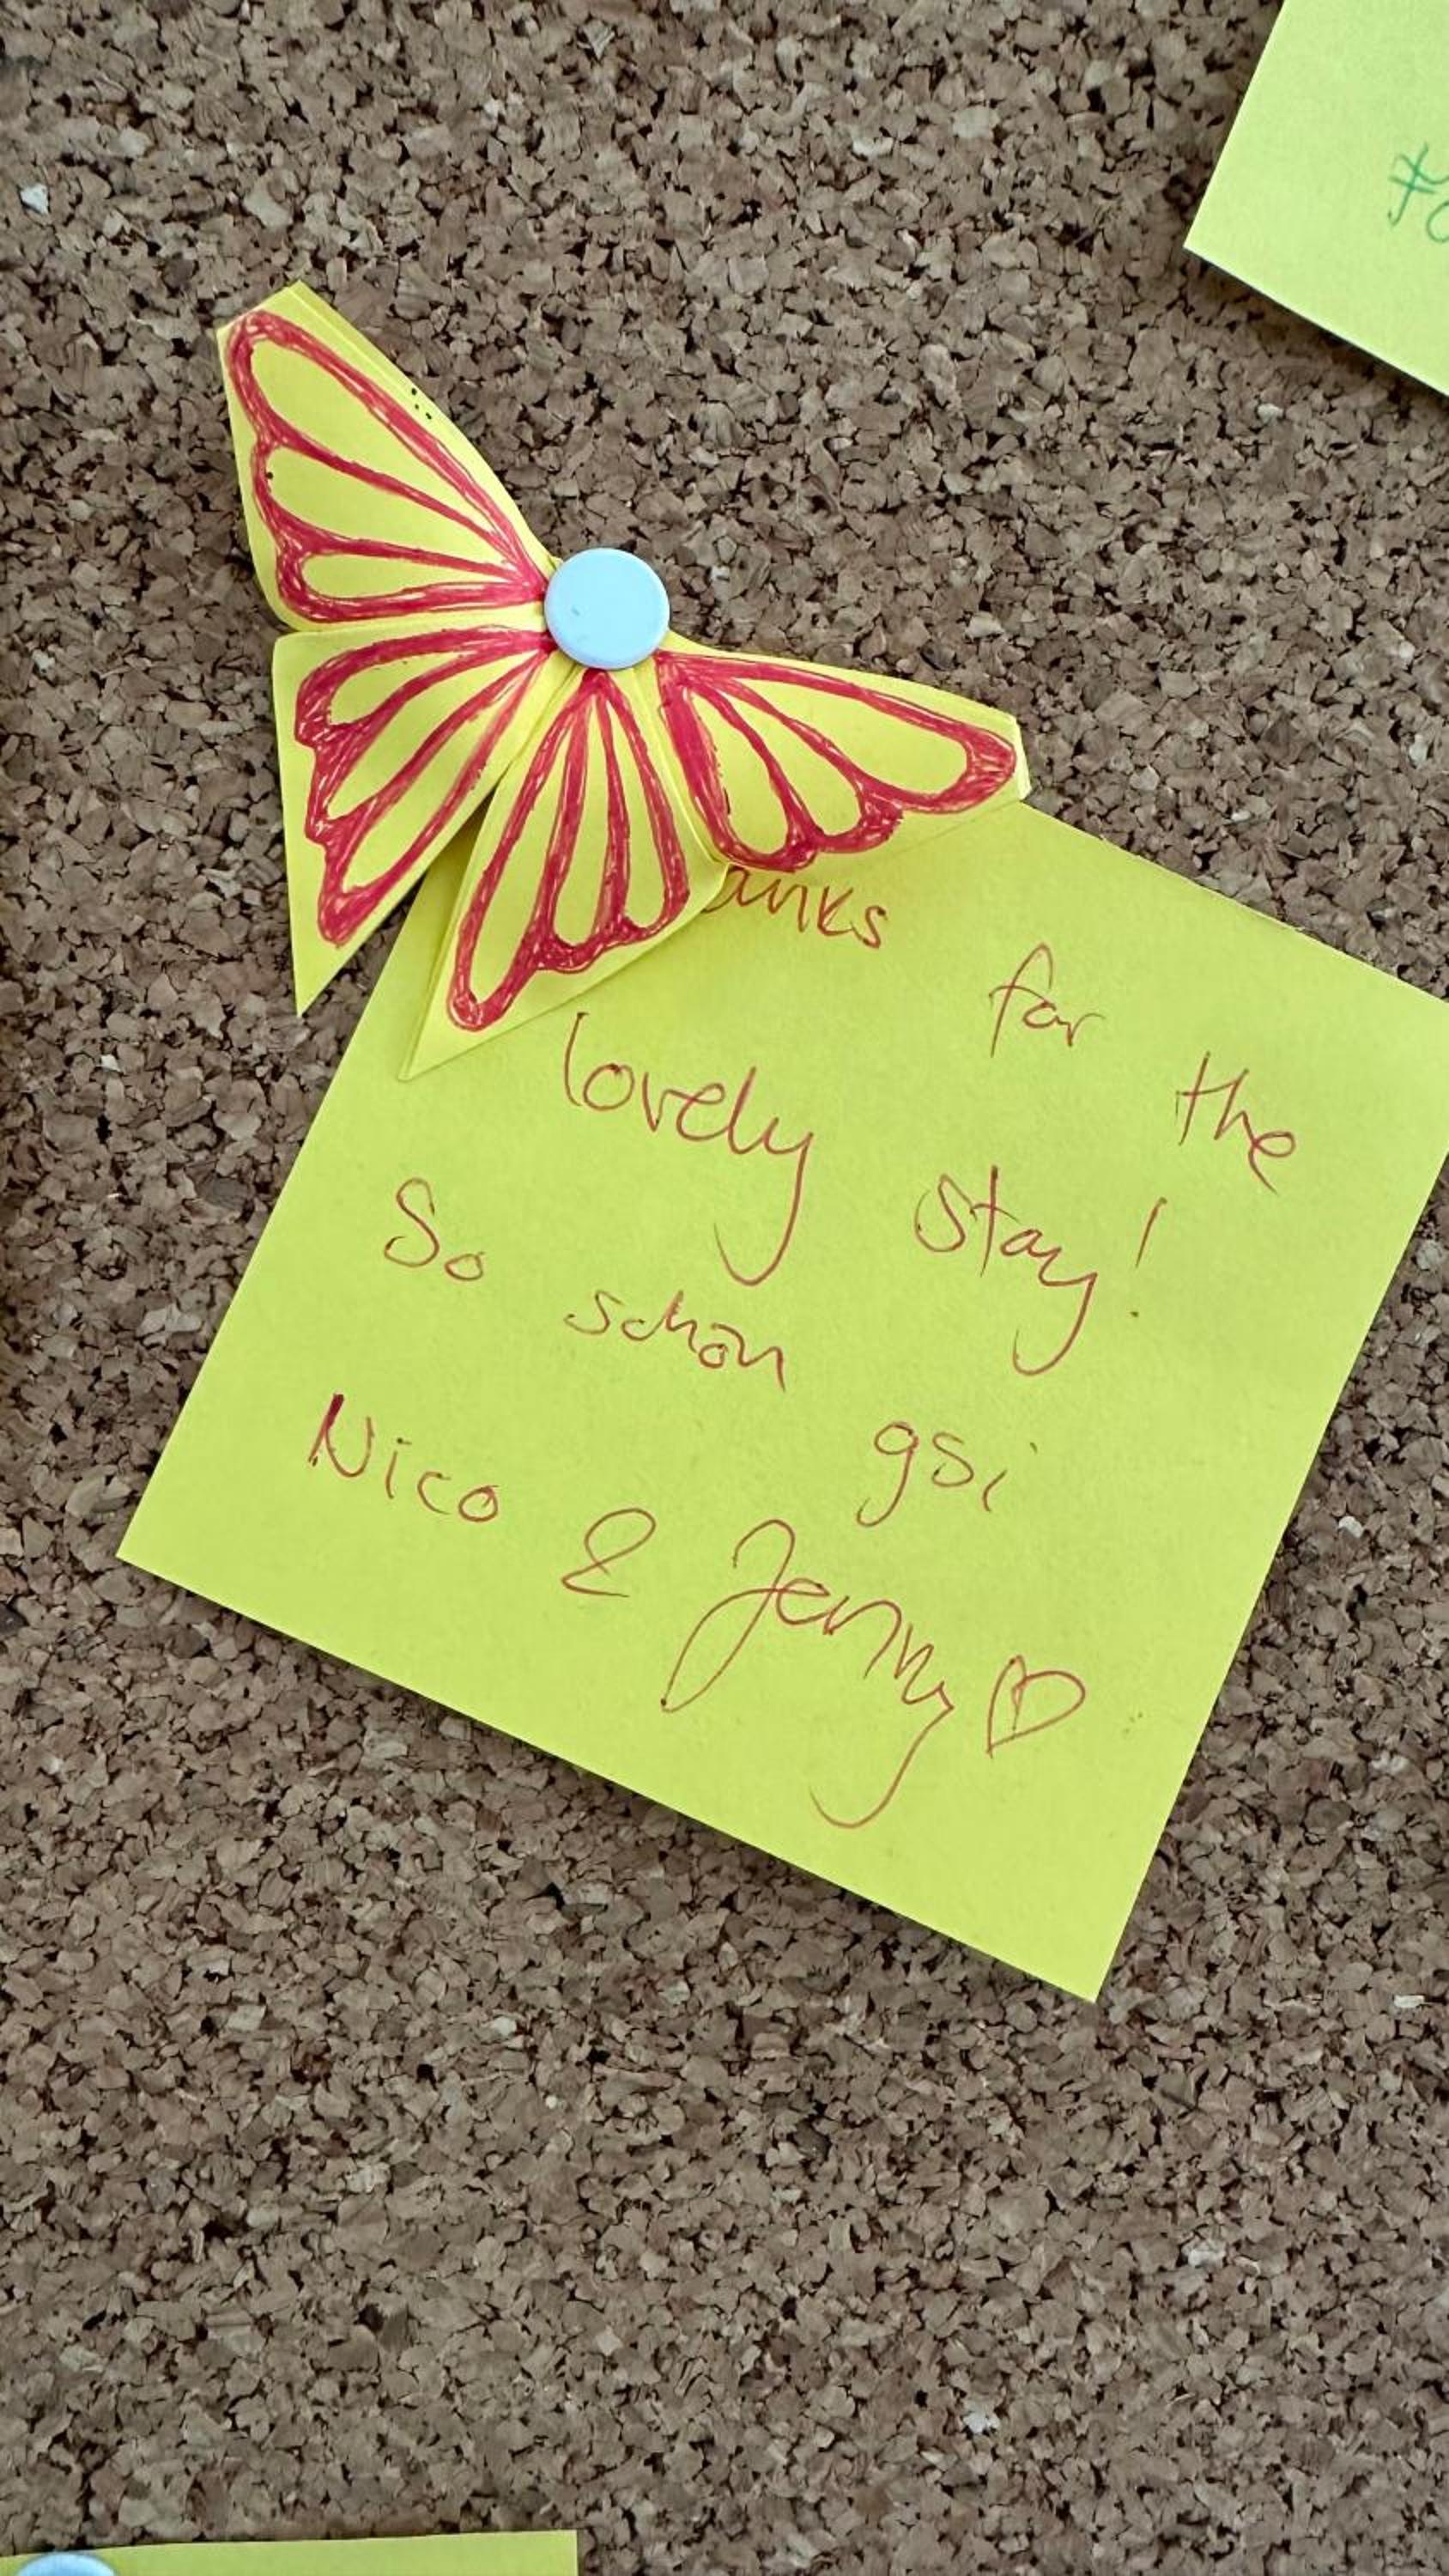 anks for the
lovely stay!
So schön gsi
Nico & Jenny ♡